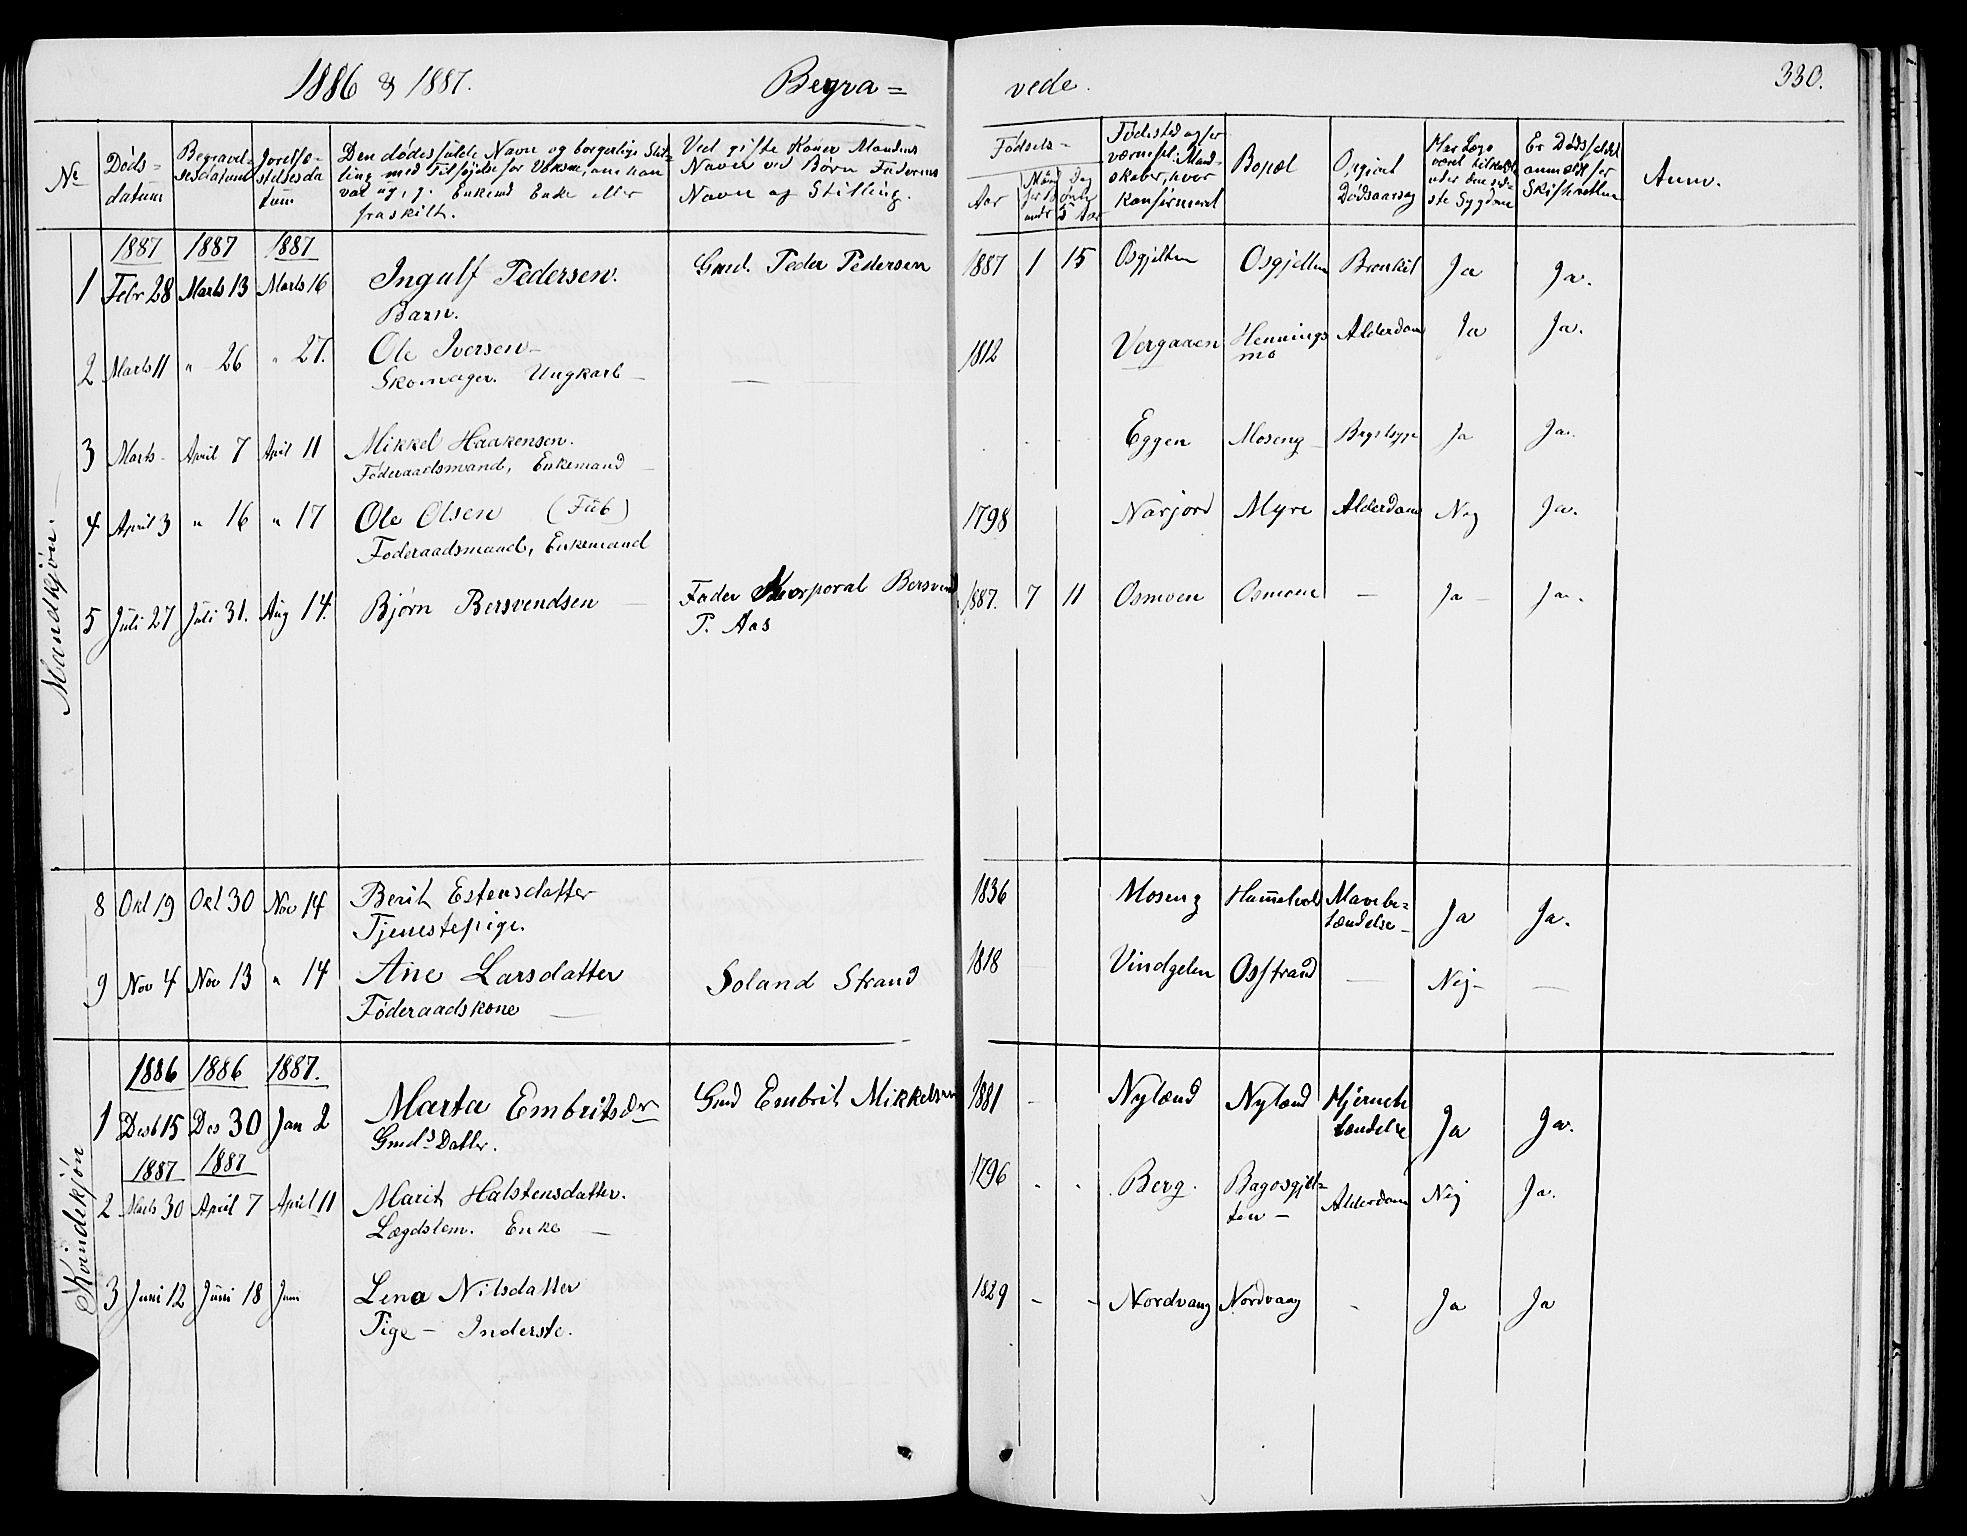 1886 & 1887. Begra= vede. 330.
No Døds-datum Begravel-sesdatum Jordfæ-stelsesda tum Den dødes fulde Navn og borgerlige Stil-ling med Tilføjelse for Voksne, om han var ug., g. Enkemd Enke eller fraskilt. Ved gifte Koner Mandens Navn ved Børn Faderens Navn og Stilling. Fødsels- Aar Fødested og for værnepl. Mand-skaber, hvor konfirmeret Bopæl Opgivet Dødsaarsag Har Læge været tilkaldt under den sid-ste Sygdom Er Dødsfaldet anmeldt for Skifteretten Anm.
Mandkjøn.
1887 1887 1887
1 Febr 28 Marts 13 Marts 16 Ingulf Pedersen. Gmd. Peder Pedersen 1887 1 15 Osgjelten Osgjelten Bronkit Ja Ja.
Barn.
2 Marts 11 " 26 " 27. Ole Iversen- 1812 Vergaaen Hennings mo Alderdom Ja Ja.
Skomager. Ungkarl - —
3 Marts - April 7 April 11 Mikkel Haakensen. Eggen Moseng Ja Ja.
Føderaadsmand, Enkemand -
4 April 3 " 16 " 17 Ole Olsen (Fiib) 1798 Narjord Myre Alderdom Nej Ja.
Føderaadsmand, Enkemand
5 Juli 27 Juli 31. Aug 14. Bjørn Bersvendsen - Fader Korporal Bersvend 1887. 7 11 Osmoen Osmoen — Ja - Ja.
P. Aas
8 Okt 19 Okt 30 Nov 14 Berit Estensdatter 1836 Moseng Hammelvold Mavebe=tændelse- Ja Ja.
Tjenestepige.
9 Nov 4 Nov 13 " 14 Ane Larsdatter Soland Strand 1818 Vindgelen Osstrand — Nej- —
Føderaadskone —
Kvindekjøn
1886 1886 1887.
1 Desb 15 Des 30 Jan 2 Marta Embritsdr Gmd Embrit Mikkelsen 1881 - Nylænd Nylænd Hjernebe tændelse Ja Ja.
Gmds Datter.
1887 1887
2 Marts 30 April 7 April 11 Marit Halstensdatter. 1796 . . Berg. Bagosgjel=ten - Alderdom Nej Ja.
Lægdslem. Enke —
3 Juni 12 Juni 18 Juni Lena Nilsdatter 1829 - - Nordvang Nordvang - Ja Ja
Pige - Inderste.